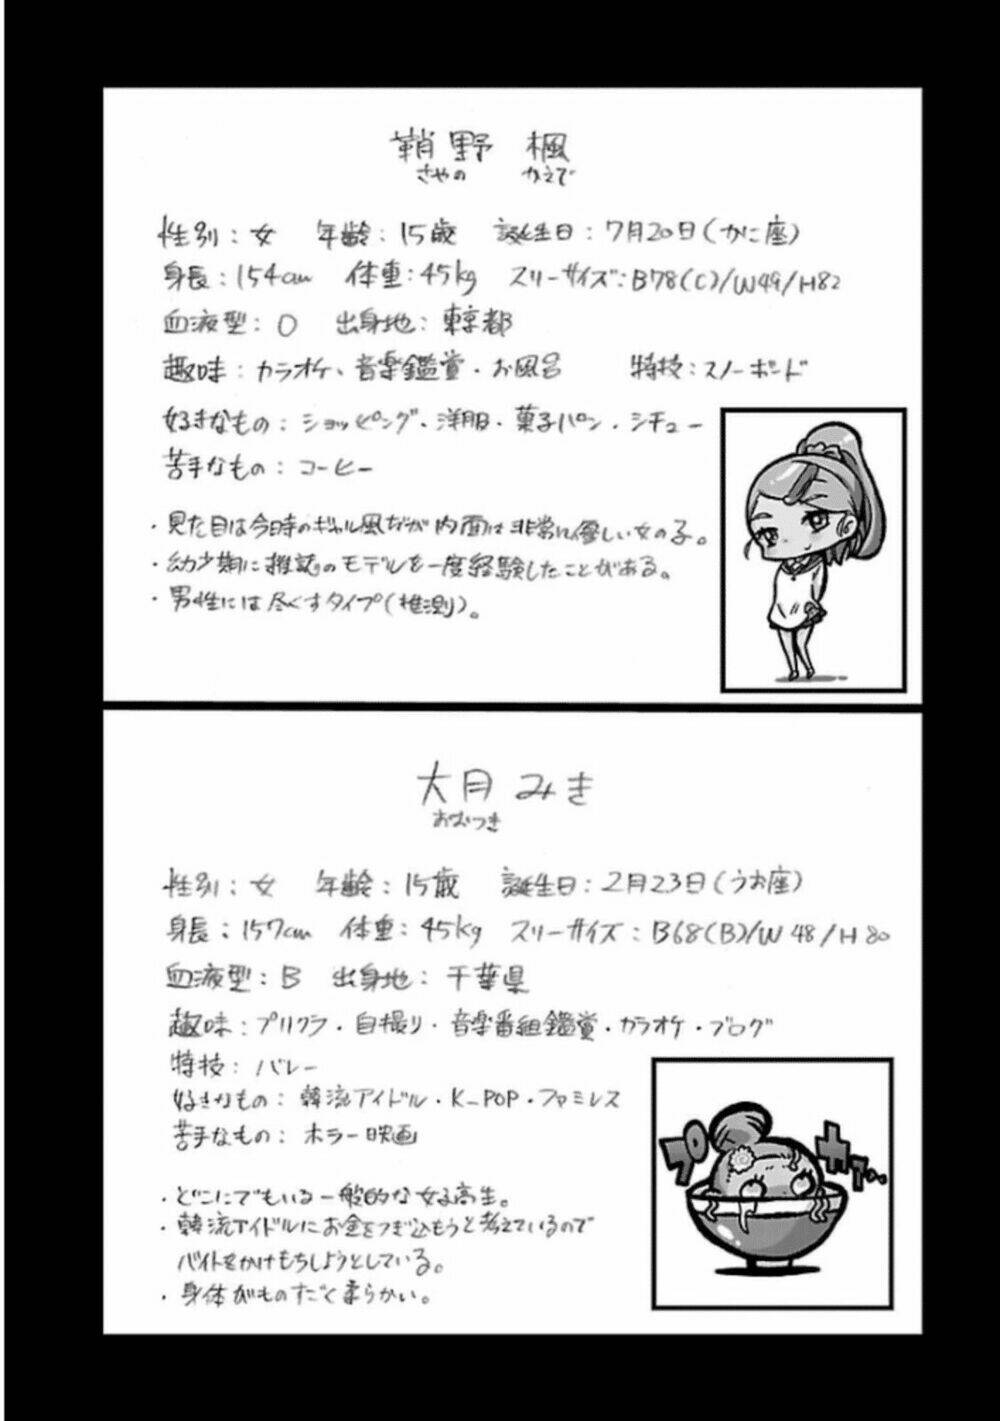 鞘野 楓
さやの かえで
性別：女 年齢：15歳 誕生日：7月20日（かに座）
身長：154cm 体重：45kg スリーサイズ：B78(C)/W49/H82
血液型：O 出身地：東京都
趣味：カラオケ、音楽鑑賞・お風呂 特技：スノーボード
好きなもの：ショッピング・洋服・菓子パン・シチュー
苦手なもの：コーヒー
・見た目は今日時のギャル風だが内面は非常に優しい女の子。
・幼少期に雑誌のモデルを一度経験したことがある。
・男性には尽くすタイプ（推測）。
大月 みき
おおつき
性別：女 年齢：15歳 誕生日：2月23日（うお座）
身長：157cm 体重：45kg スリーサイズ：B68(B)/W48/H80
血液型：B 出身地：千葉県
趣味：プリクラ・自撮り・音楽番組鑑賞・カラオケ・ブログ
特技：バレー
好きなもの：韓流アイドル・K-POP・ファミレス
苦手なもの：ホラー映画
・どこにでもいる一般的な女子高生。
・韓流アイドルにお金をつぎ込もうと考えているので
バイトをかけもちしようとしている。
・身体がものすごく柔らかい。